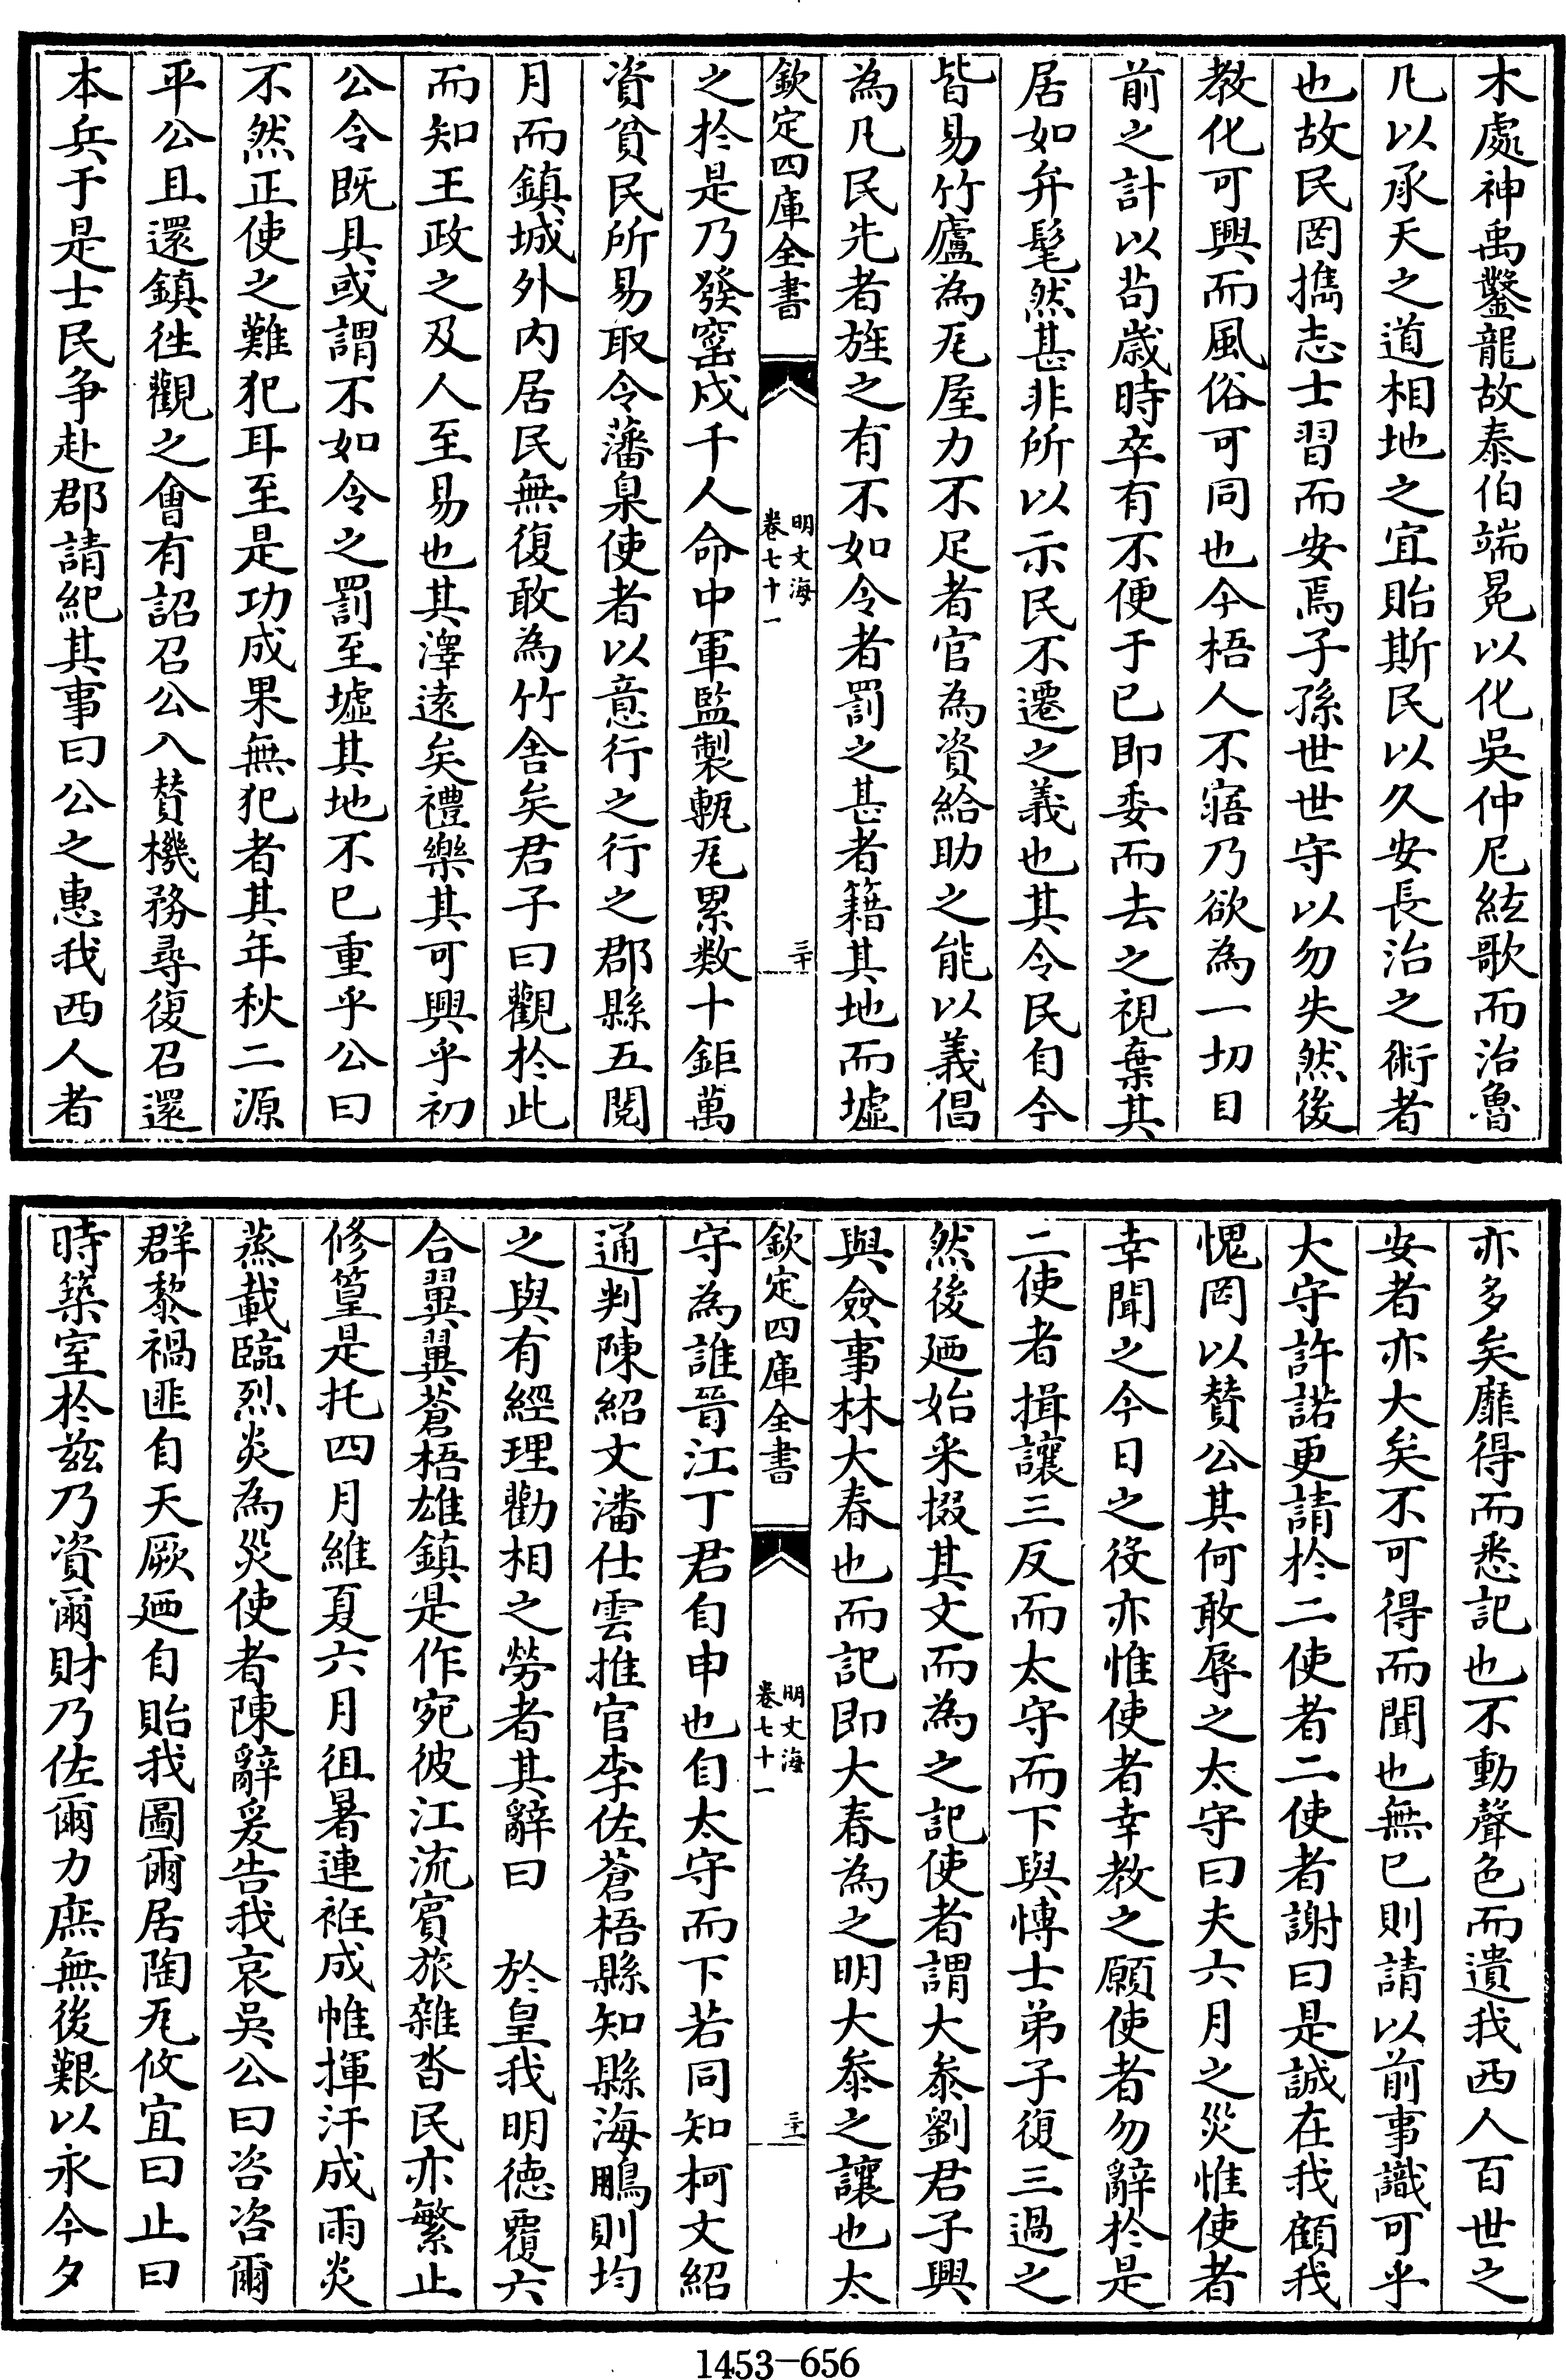 木處神禹鑿龍故泰伯端冕以化吳仲尼絃歌而治魯
凡以承天之道相地之宜貽斯民以久安長治之術者
也故民罔攜志士習而安焉子孫世世守以勿失然後
教化可興而風俗可同也今梧人不寤乃欲為一切目
前之計以茍歲時卒有不便于已即委而去之視棄其
居如弁髦然甚非所以示民不遷之義也其令民自今
皆易竹廬為瓦屋力不足者官為資給助之能以義倡
為凡民先者旌之有不如令者罰之甚者籍其地而墟
欽定四庫全書
明文海
卷七十一
三十
之於是乃發窑戍千人命中軍監製甎瓦累數十鉅萬
資貧民所易取令藩臬使者以意行之行之郡縣五閱
月而鎮城外内居民無復敢為竹舍矣君子曰觀於此
而知王政之及人至易也其澤遠矣禮樂其可興乎初
公令既具或謂不如令之罰至墟其地不已重乎公曰
不然正使之難犯耳至是功成果無犯者其年秋二源
平公且還鎮徃觀之會有詔召公入贊機務尋復召還
本兵于是士民争赴郡請紀其事曰公之惠我西人者
亦多矣靡得而悉記也不動聲色而遺我西人百世之
安者亦大矣不可得而聞也無已則請以前事識可乎
大守許諾更請於二使者二使者謝曰是誠在我顧我
愧罔以贊公其何敢辱之太守曰夫六月之災惟使者
幸聞之今日之役亦惟使者幸教之願使者勿辭於是
二使者揖讓三反而太守而下與博士弟子復三過之
然後廼始采掇其文而為之記使者謂大叅劉君子興
與僉事林大春也而記即大春為之明大叅之讓也太
欽定四庫全書
明文海
卷七十一
三十一
守為誰晉江丁君自申也自太守而下若同知柯文紹
通判陳紹文潘仕雲推官李佐蒼梧縣知縣海鵬則均
之與有經理勸相之勞者其辭曰　於皇我明德覆六
合翼翼蒼梧雄鎮是作宛彼江流賓旅雜沓民亦繁止
修篁是托四月維夏六月徂暑連袵成帷揮汗成雨炎
蒸載臨烈炎為災使者陳辭爰告我哀吳公曰咨咨爾
群黎禍匪自天厥廼自貽我圖爾居陶瓦攸宜曰止曰
時築室於兹乃資爾財乃佐爾力庶無後艱以永今夕
1453-656